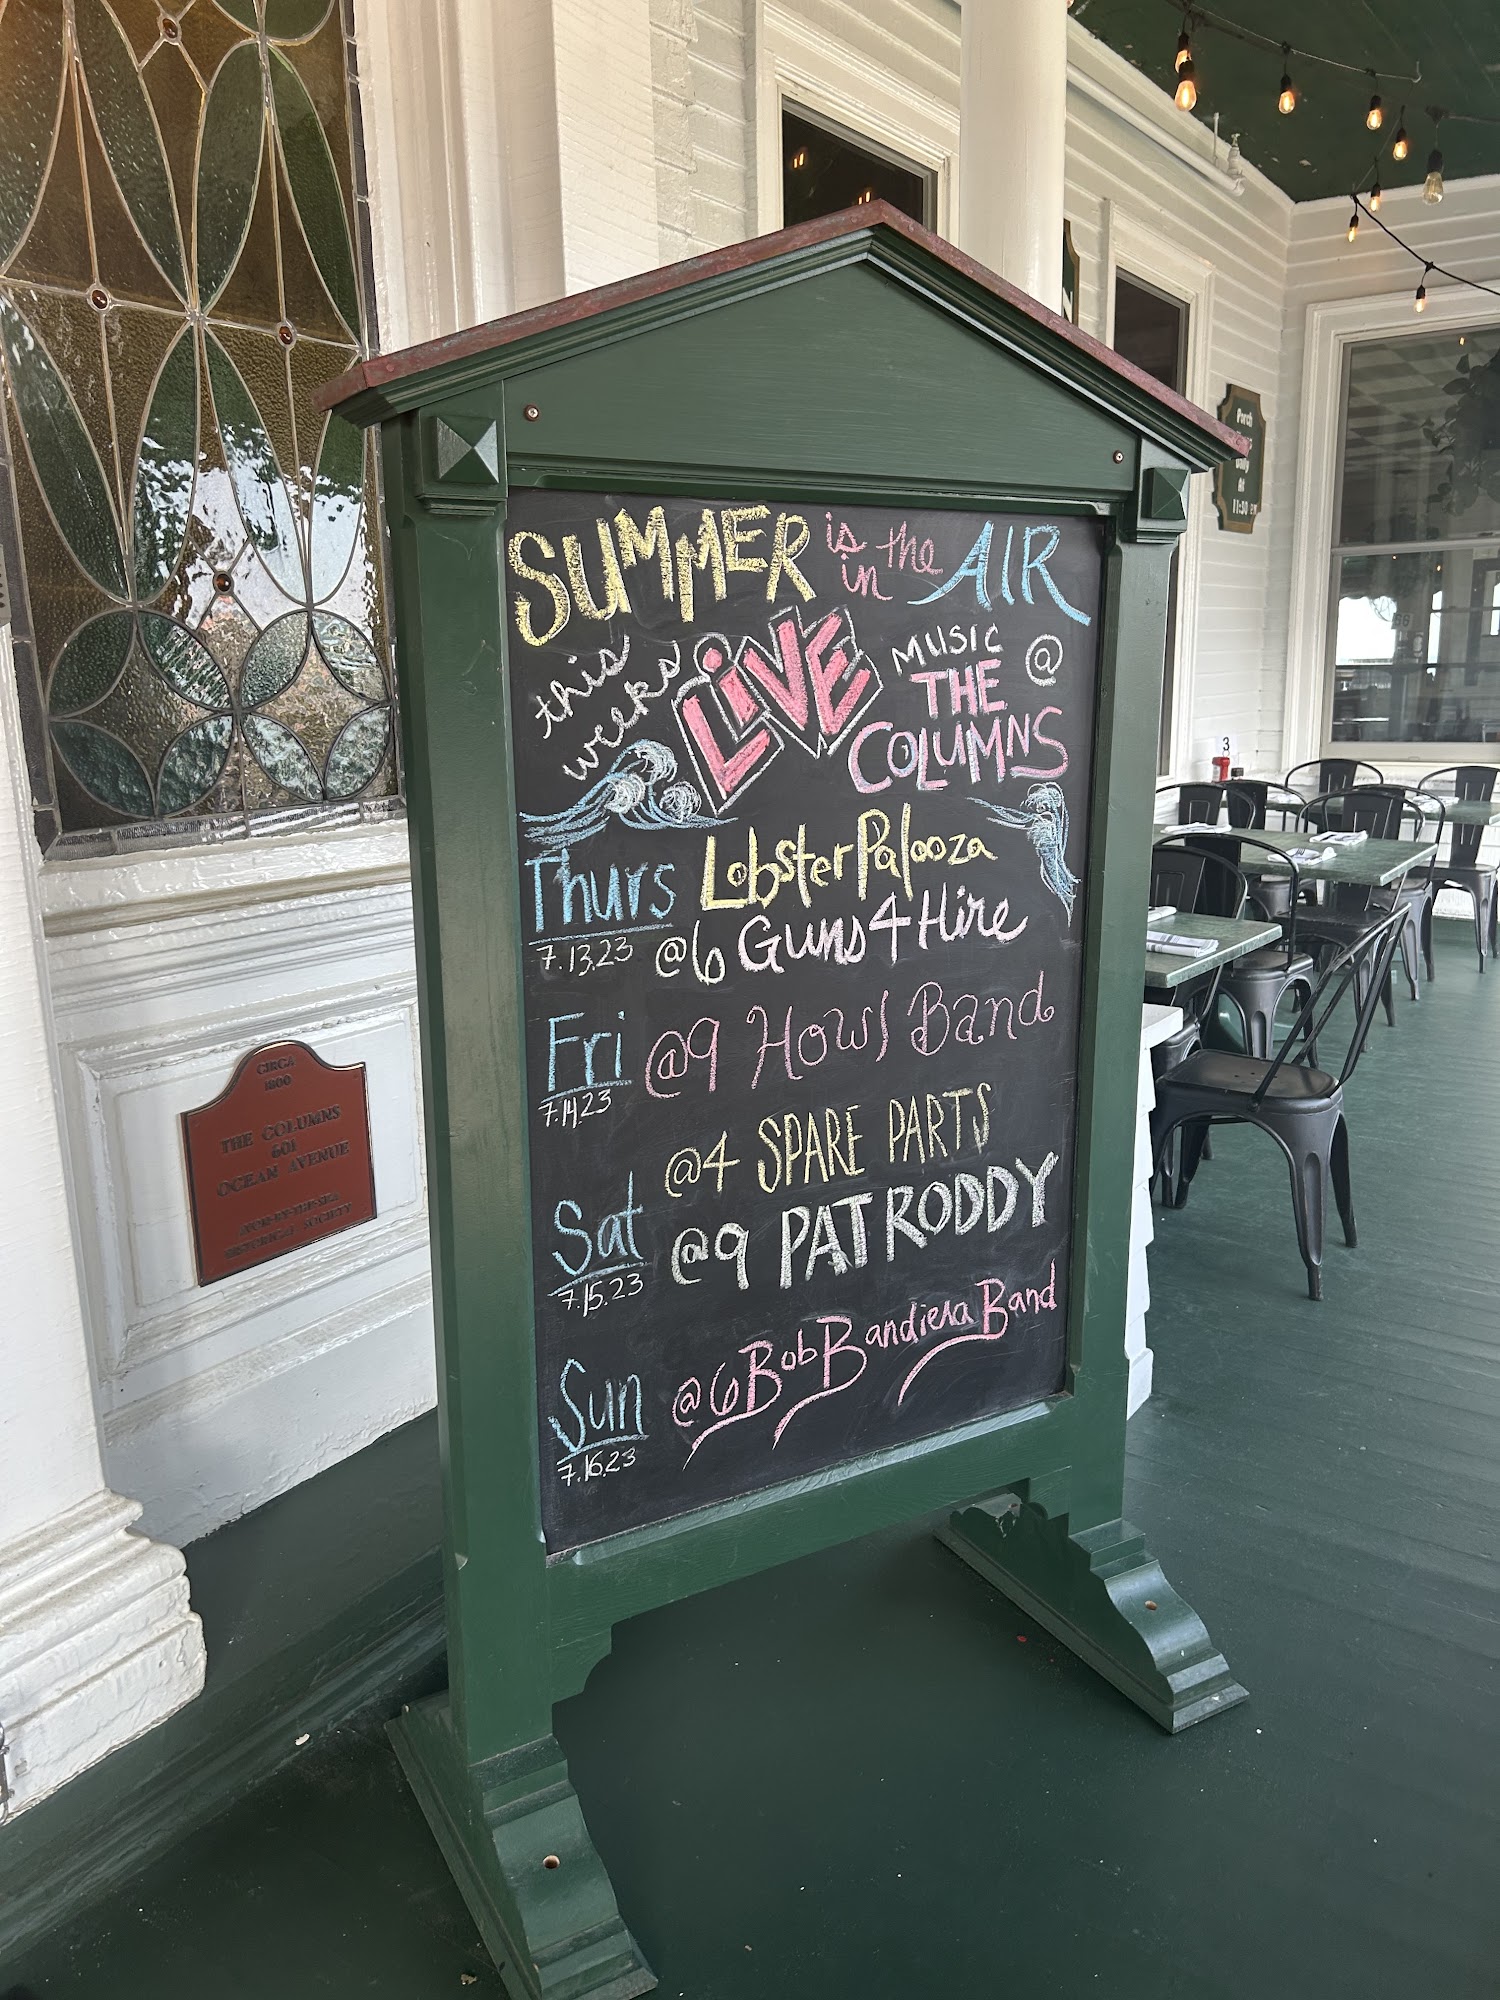 SUMMER is in the AIR
this weeks LIVE MUSIC @ THE COLUMNS
Thurs LobsterPalooza
7.13.23 @6 Guns 4 Hire
Fri @9 Howl Band
7.14.23
@4 SPARE PARTS
Sat @9 PAT RODDY
7.15.23
Sun @6 Bob Bandiera Band
7.16.23
CIRCA
1800
THE COLUMNS
601
OCEAN AVENUE
AVON-BY-THE-SEA
HISTORICAL SOCIETY
Porch
Daily
At
11:30
3